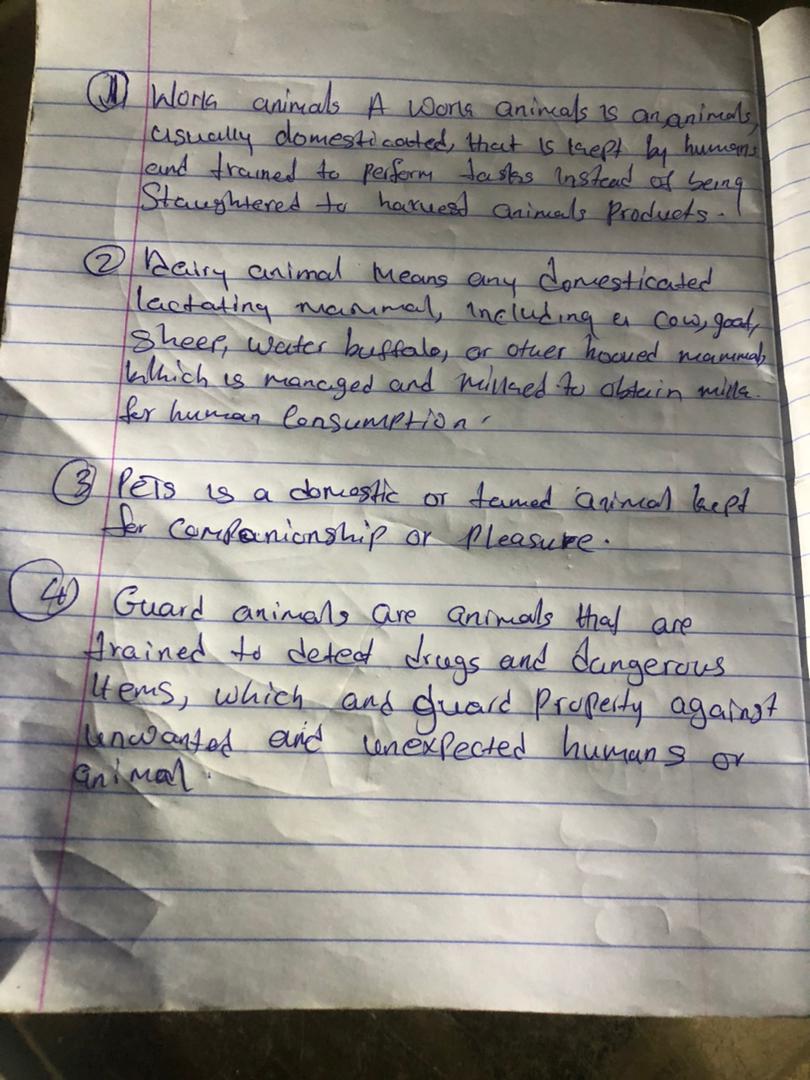 ① Work animals A work animals is an animals,
usually domesticated, that is kept by humans
and trained to perform tasks instead of being
Slaughtered to harvest animals products.
② Dairy animal means any domesticated
lactating mammal, including a cow, goat,
sheep, water buffalo, or other hooved mammal,
which is managed and milked to obtain milk
for human Consumption.
③ PETS is a domestic or tamed animal kept
for companionship or pleasure.
④ Guard animals are animals that are
trained to detect drugs and dangerous
Items, which and guard property against
unwanted and unexpected humans or
animal.